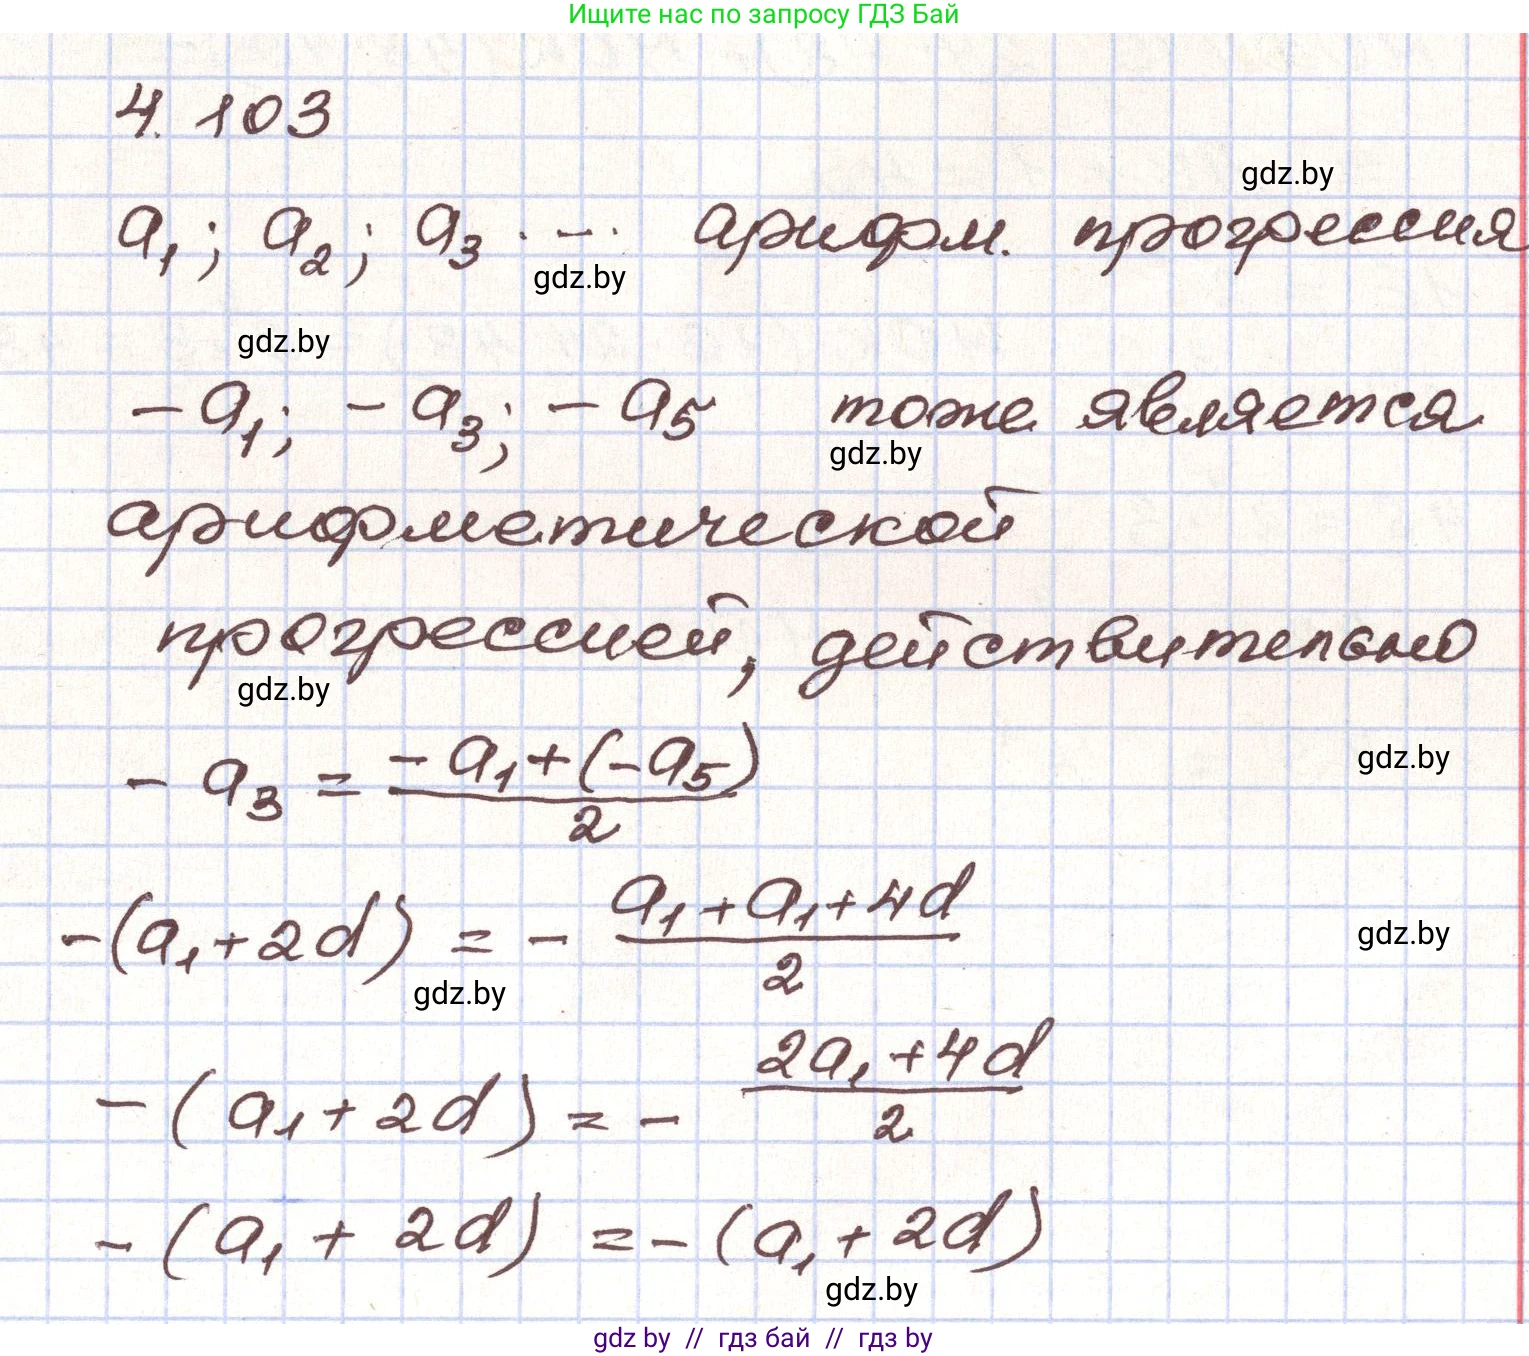 Ищите нас по запросу ГДЗ Бай
4.103
gdz.by
a₁; a₂; a₃ ..... арифм. прогрессия
gdz.by
gdz.by
-a₁; -a₃; -a₅ тоже является
gdz.by
арифметической
прогрессией, действительно
gdz.by
-a₃ = (-a₁+(-a₅))/2
gdz.by
-(a₁+2d) = - (a₁+a₁+4d)/2
gdz.by
gdz.by
-(a₁+2d) = - (2a₁+4d)/2
-(a₁+2d) = -(a₁+2d)
gdz.by
gdz by // гдз бай // гдз by